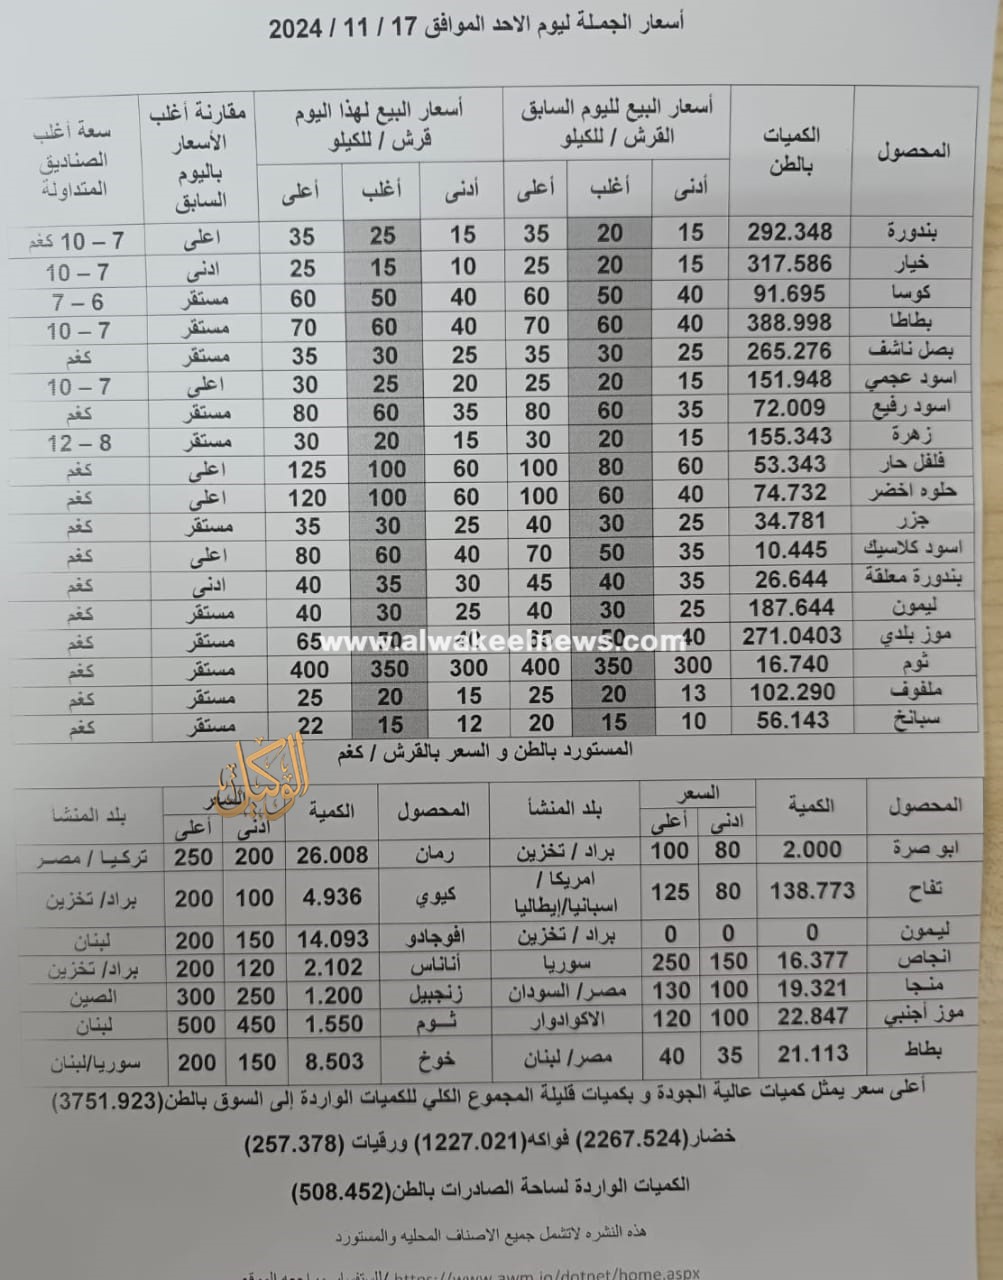 أسعار الجملة ليوم الاحد الموافق 17 / 11 / 2024
المحصول الكميات بالطن أسعار البيع لليوم السابق القرش / للكيلو أسعار البيع لهذا اليوم قرش / للكيلو مقارنة أغلب الأسعار باليوم السابق سعة أغلب الصناديق المتداولة
أدنى أغلب أعلى أدنى أغلب أعلى
بندورة 292.348 15 20 35 15 25 35 اعلى 7 – 10 كغم
خيار 317.586 15 20 25 10 15 25 ادنى 7 – 10
كوسا 91.695 40 50 60 40 50 60 مستقر 6 – 7
بطاطا 388.998 40 60 70 40 60 70 مستقر 7 – 10
بصل ناشف 265.276 25 30 35 25 30 35 مستقر كغم
اسود عجمي 151.948 15 20 25 20 25 30 اعلى 7 – 10
اسود رفيع 72.009 35 60 80 35 60 80 مستقر كغم
زهرة 155.343 15 20 30 15 20 30 مستقر 8 – 12
فلفل حار 53.343 60 80 100 60 100 125 اعلى كغم
حلوه اخضر 74.732 40 60 100 60 100 120 اعلى كغم
جزر 34.781 25 30 40 25 30 35 مستقر كغم
اسود كلاسيك 10.445 35 50 70 40 60 80 اعلى كغم
بندورة معلقة 26.644 35 40 45 30 35 40 ادنى كغم
ليمون 187.644 25 30 40 25 30 40 مستقر كغم
موز بلدي 271.0403 40 50 65 مستقر كغم
www.alwakeelnews.com
ثوم 16.740 300 350 400 300 350 400 مستقر كغم
ملفوف 102.290 13 20 25 15 20 25 مستقر كغم
سبانخ 56.143 10 15 20 12 15 22 مستقر كغم
المستورد بالطن و السعر بالقرش / كغم
الوكيل
المحصول الكمية السعر بلد المنشأ المحصول الكمية السعر بلد المنشأ
ادنى أعلى ادنى أعلى
ابو صرة 2.000 80 100 براد / تخزين رمان 26.008 200 250 تركيا / مصر
تفاح 138.773 80 125 امريكا / اسبانيا/إيطاليا كيوي 4.936 100 200 براد/ تخزين
ليمون 0 0 0 براد / تخزين افوجادو 14.093 150 200 لبنان
انجاص 16.377 150 250 سوريا أناناس 2.102 120 200 براد/ تخزين
منجا 19.321 100 130 مصر/ السودان زنجبيل 1.200 250 300 الصين
موز أجنبي 22.847 100 120 الاكوادوار ثوم 1.550 450 500 لبنان
بطاط 21.113 35 40 مصر/ لبنان خوخ 8.503 150 200 سوريا/لبنان
أعلى سعر يمثل كميات عالية الجودة و بكميات قليلة المجموع الكلي للكميات الواردة إلى السوق بالطن(3751.923)
خضار(2267.524) فواكه(1227.021) ورقيات (257.378)
الكميات الواردة لساحة الصادرات بالطن(508.452)
هذه النشره لاتشمل جميع الاصناف المحليه والمستورد
https://www.awm.jo/dotnet/home.aspx